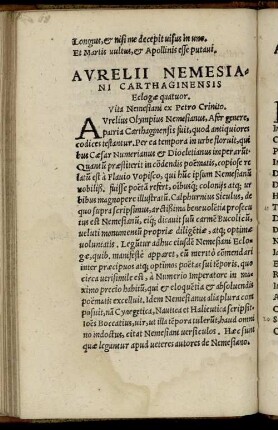 Longus, & nisi me decepit uisus in umo.
Et Martis uultus, & Apollinis esse putaui.
AVRELII NEMESIA-
NI CARTHAGINENSIS
Eclogæ quatuor.
Vita Nemesiani ex Petro Crinito.
AVrelius Olympius Nemesianus, Afer genere,
patria Carthaginensis fuit, quod antiquiores
codices testantur. Per ea tempora in urbe floruit, qui
bus Cæsar Numerianus & Diocletianus imperarũt.
Quantũ præstiterit in cõdendis poëmatis, copiose re
latũ est à Flauio Vopisco, qui hũc ipsum Nemesianũ
nobiliss. fuisse poëtã refert, oibusq; colonijs atq; ur
bibus magnopere illustratũ. Calphurnius Siculus, de
quo supra scripsimus, arctissima beneuolẽtia prosecu
tus est Nemesianũ, eiq; dicauit suũ carmẽ Bucolicũ,
ueluti monumentũ propriæ diligẽtiæ, atq; optimæ
uoluntatis. Legũtur adhuc eiusdẽ Nemesiani Eclo-
gæ, quib. manifestè apparet, eũ meritò cõmendari
inter præcipuos atq; optimos poëtas sui tẽporis, quo
circa uerisimile est, à Numerio Imperatore in ma-
ximo precio habitũ, qui & eloquẽtia & absoluendis
poëmatis excelluit. Idem Nemesianus alia plura com
posuit, nã Cynegetica, Nautica et Halieutica scripsit
Ioẽs Boccatius, uir, ut illa tẽpora tulerũt, haud omni
no indoctus, citat Nemesiani uersiculos. Hæc sunt
quæ legantur apud ueteres autores de Nemesiano.